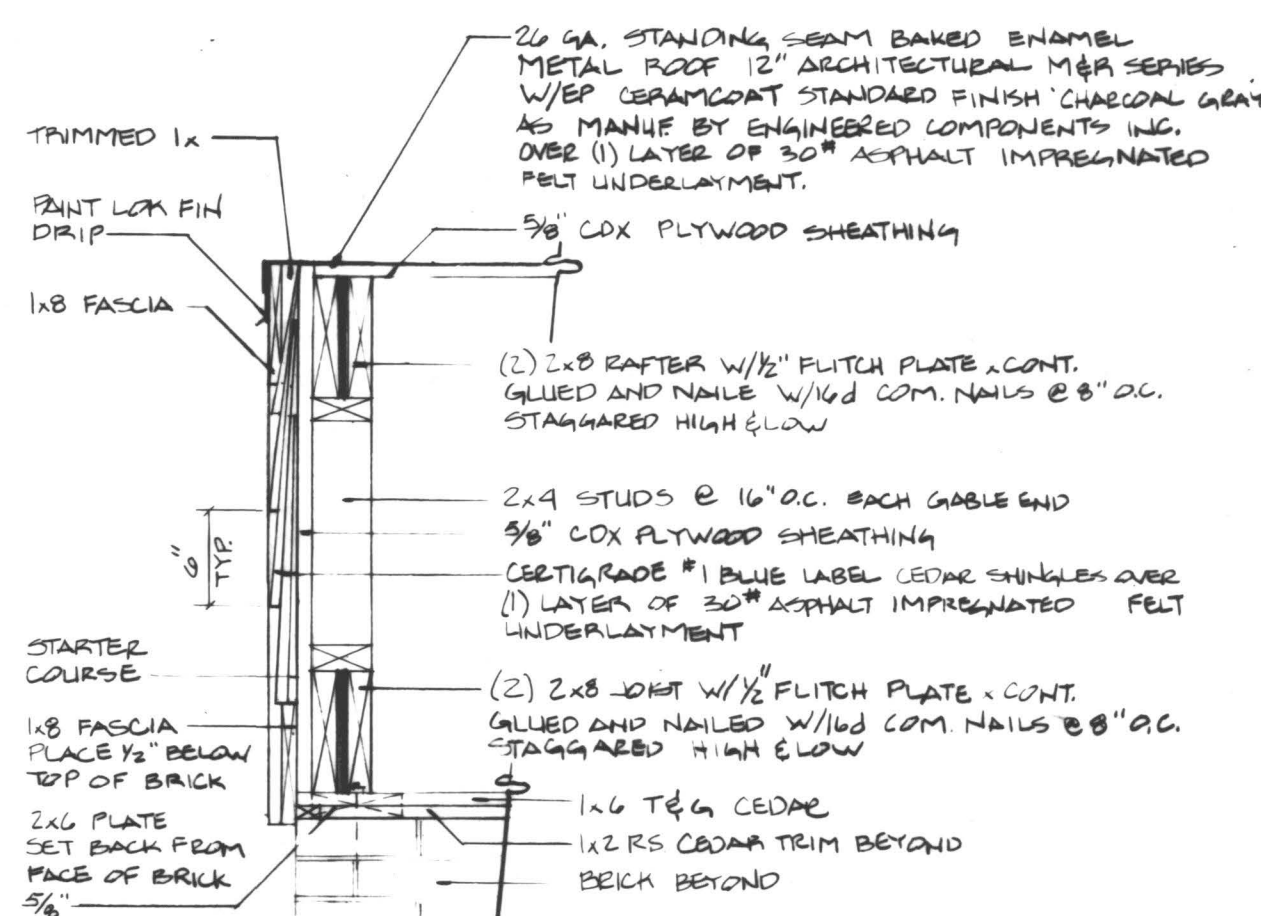 26 GA. STANDING SEAM BAKED ENAMEL
METAL ROOF 12" ARCHITECTURAL M&R SERIES
W/EP CERAMCOAT STANDARD FINISH 'CHARCOAL GRAY
AS MANUF. BY ENGINEERED COMPONENTS INC.
OVER (1) LAYER OF 30# ASPHALT IMPREGNATED
FELT UNDERLAYMENT.
TRIMMED 1x
PAINT LOK FIN
DRIP
5/8" CDX PLYWOOD SHEATHING
1x8 FASCIA
(2) 2x8 RAFTER W/1/2" FLITCH PLATE x CONT.
GLUED AND NAILE W/16d COM. NAILS @ 8" O.C.
STAGGARED HIGH & LOW
2x4 STUDS @ 16" O.C. EACH GABLE END
5/8" CDX PLYWOOD SHEATHING
6"
TYP.
CERTIGRADE #1 BLUE LABEL CEDAR SHINGLES OVER
(1) LAYER OF 30# ASPHALT IMPREGNATED FELT
UNDERLAYMENT
STARTER
COURSE
(2) 2x8 JOIST W/1/2" FLITCH PLATE x CONT.
GLUED AND NAILED W/16d COM. NAILS @ 8" O.C.
STAGGARED HIGH & LOW
1x8 FASCIA
PLACE 1/2" BELOW
TOP OF BRICK
1x6 T&G CEDAR
2x6 PLATE
SET BACK FROM
FACE OF BRICK
5/8"
1x2 RS CEDAR TRIM BEYOND
BRICK BEYOND